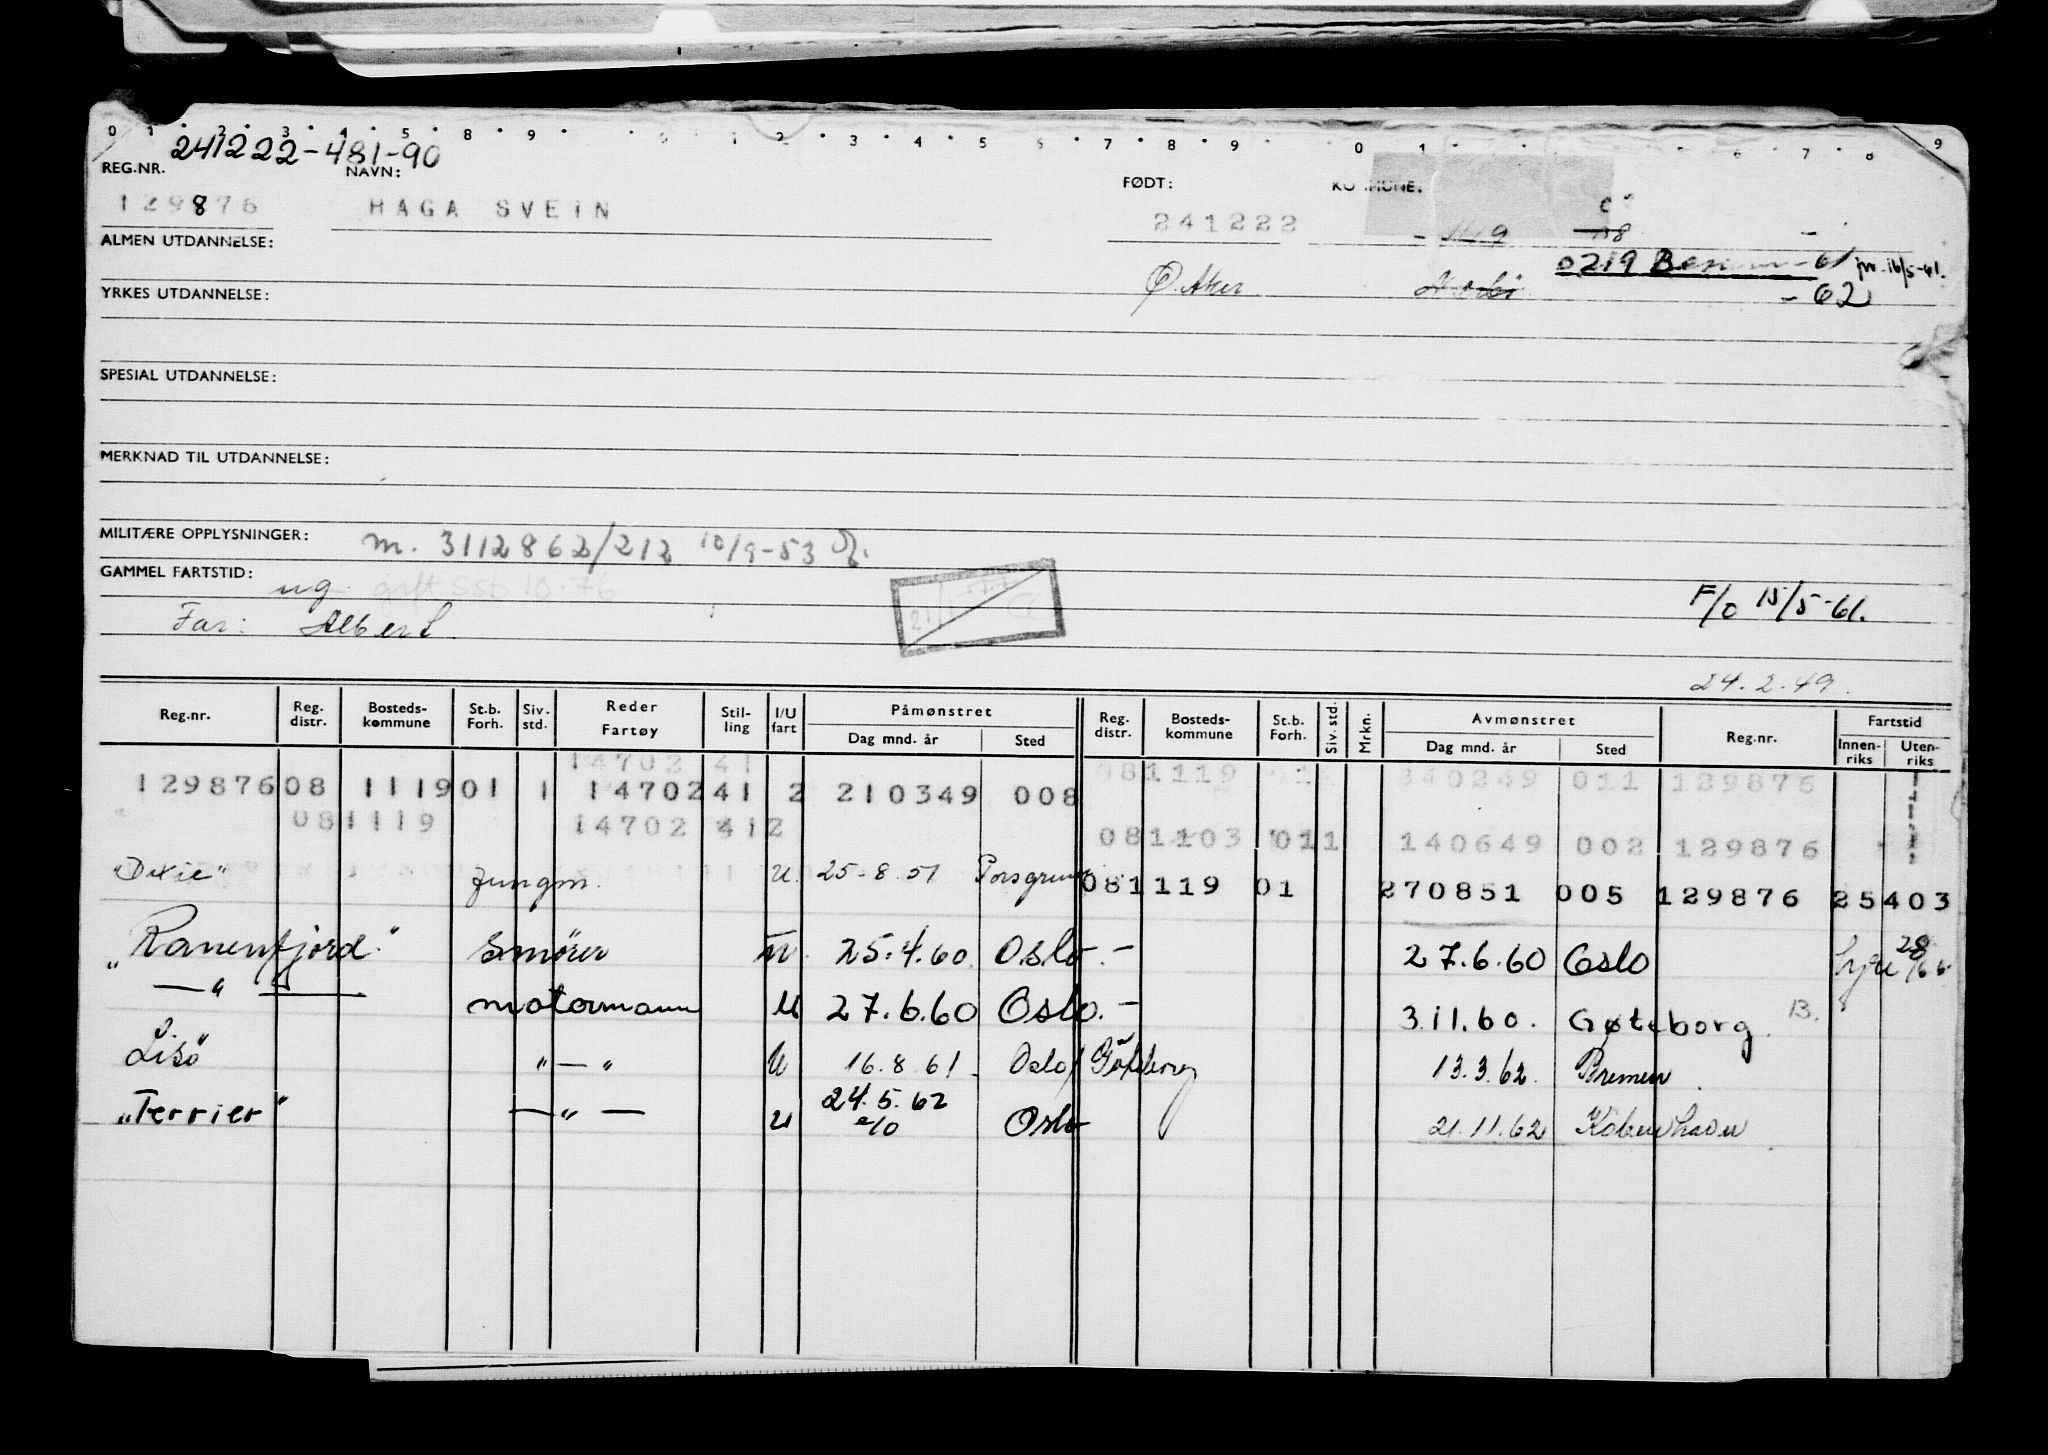 241222-481-90
REG.NR. NAVN: FØDT: KOMMUNE:
129876 HAGA SVEIN 241222
ALMEN UTDANNELSE: 0219 -61 16/5-61.
YRKES UTDANNELSE: Ø. Aker - 62
SPESIAL UTDANNELSE:
MERKNAD TIL UTDANNELSE:
MILITÆRE OPPLYSNINGER: m. 3112862/212 10/9-53
GAMMEL FARTSTID: ug. gift SSB 10.76
Far: Albert F/o 15/5-61.
24.2.49.
Reg.nr. Reg. distr. Bosteds-kommune St.b. Forh. Siv. std. Reder Fartøy Stil-ling I/U fart Påmønstret Dag mnd. år Sted Reg. distr. Bosteds-kommune St.b. Forh. Siv. std. Mrkn. Avmønstret Dag mnd. år Sted Reg.nr. Fartstid Innen-riks Uten-riks
14702 41 081119 011 240249 011 129876
129876 08 1119 01 1 14702 41 2 210349 008
081119 14702 412 081103 011 140649 002 129876
"Dixie" Jungm. U. 25-8.51 Porsgrunn 081119 01 270851 005 129876 25403
"Ranenfjord" Smører U. 25.4.60 Oslo.- 27.6.60 Oslo 28/6
—"— motormann U 27.6.60 Oslo.- 3.11.60. Gøteborg. 13.
"Lisø" "—" U 16.8.61 Oslo/Göteborg 13.3.62. Bremen
"Terrier" —"— U 24.5.62 Oslo 21.11.62 København